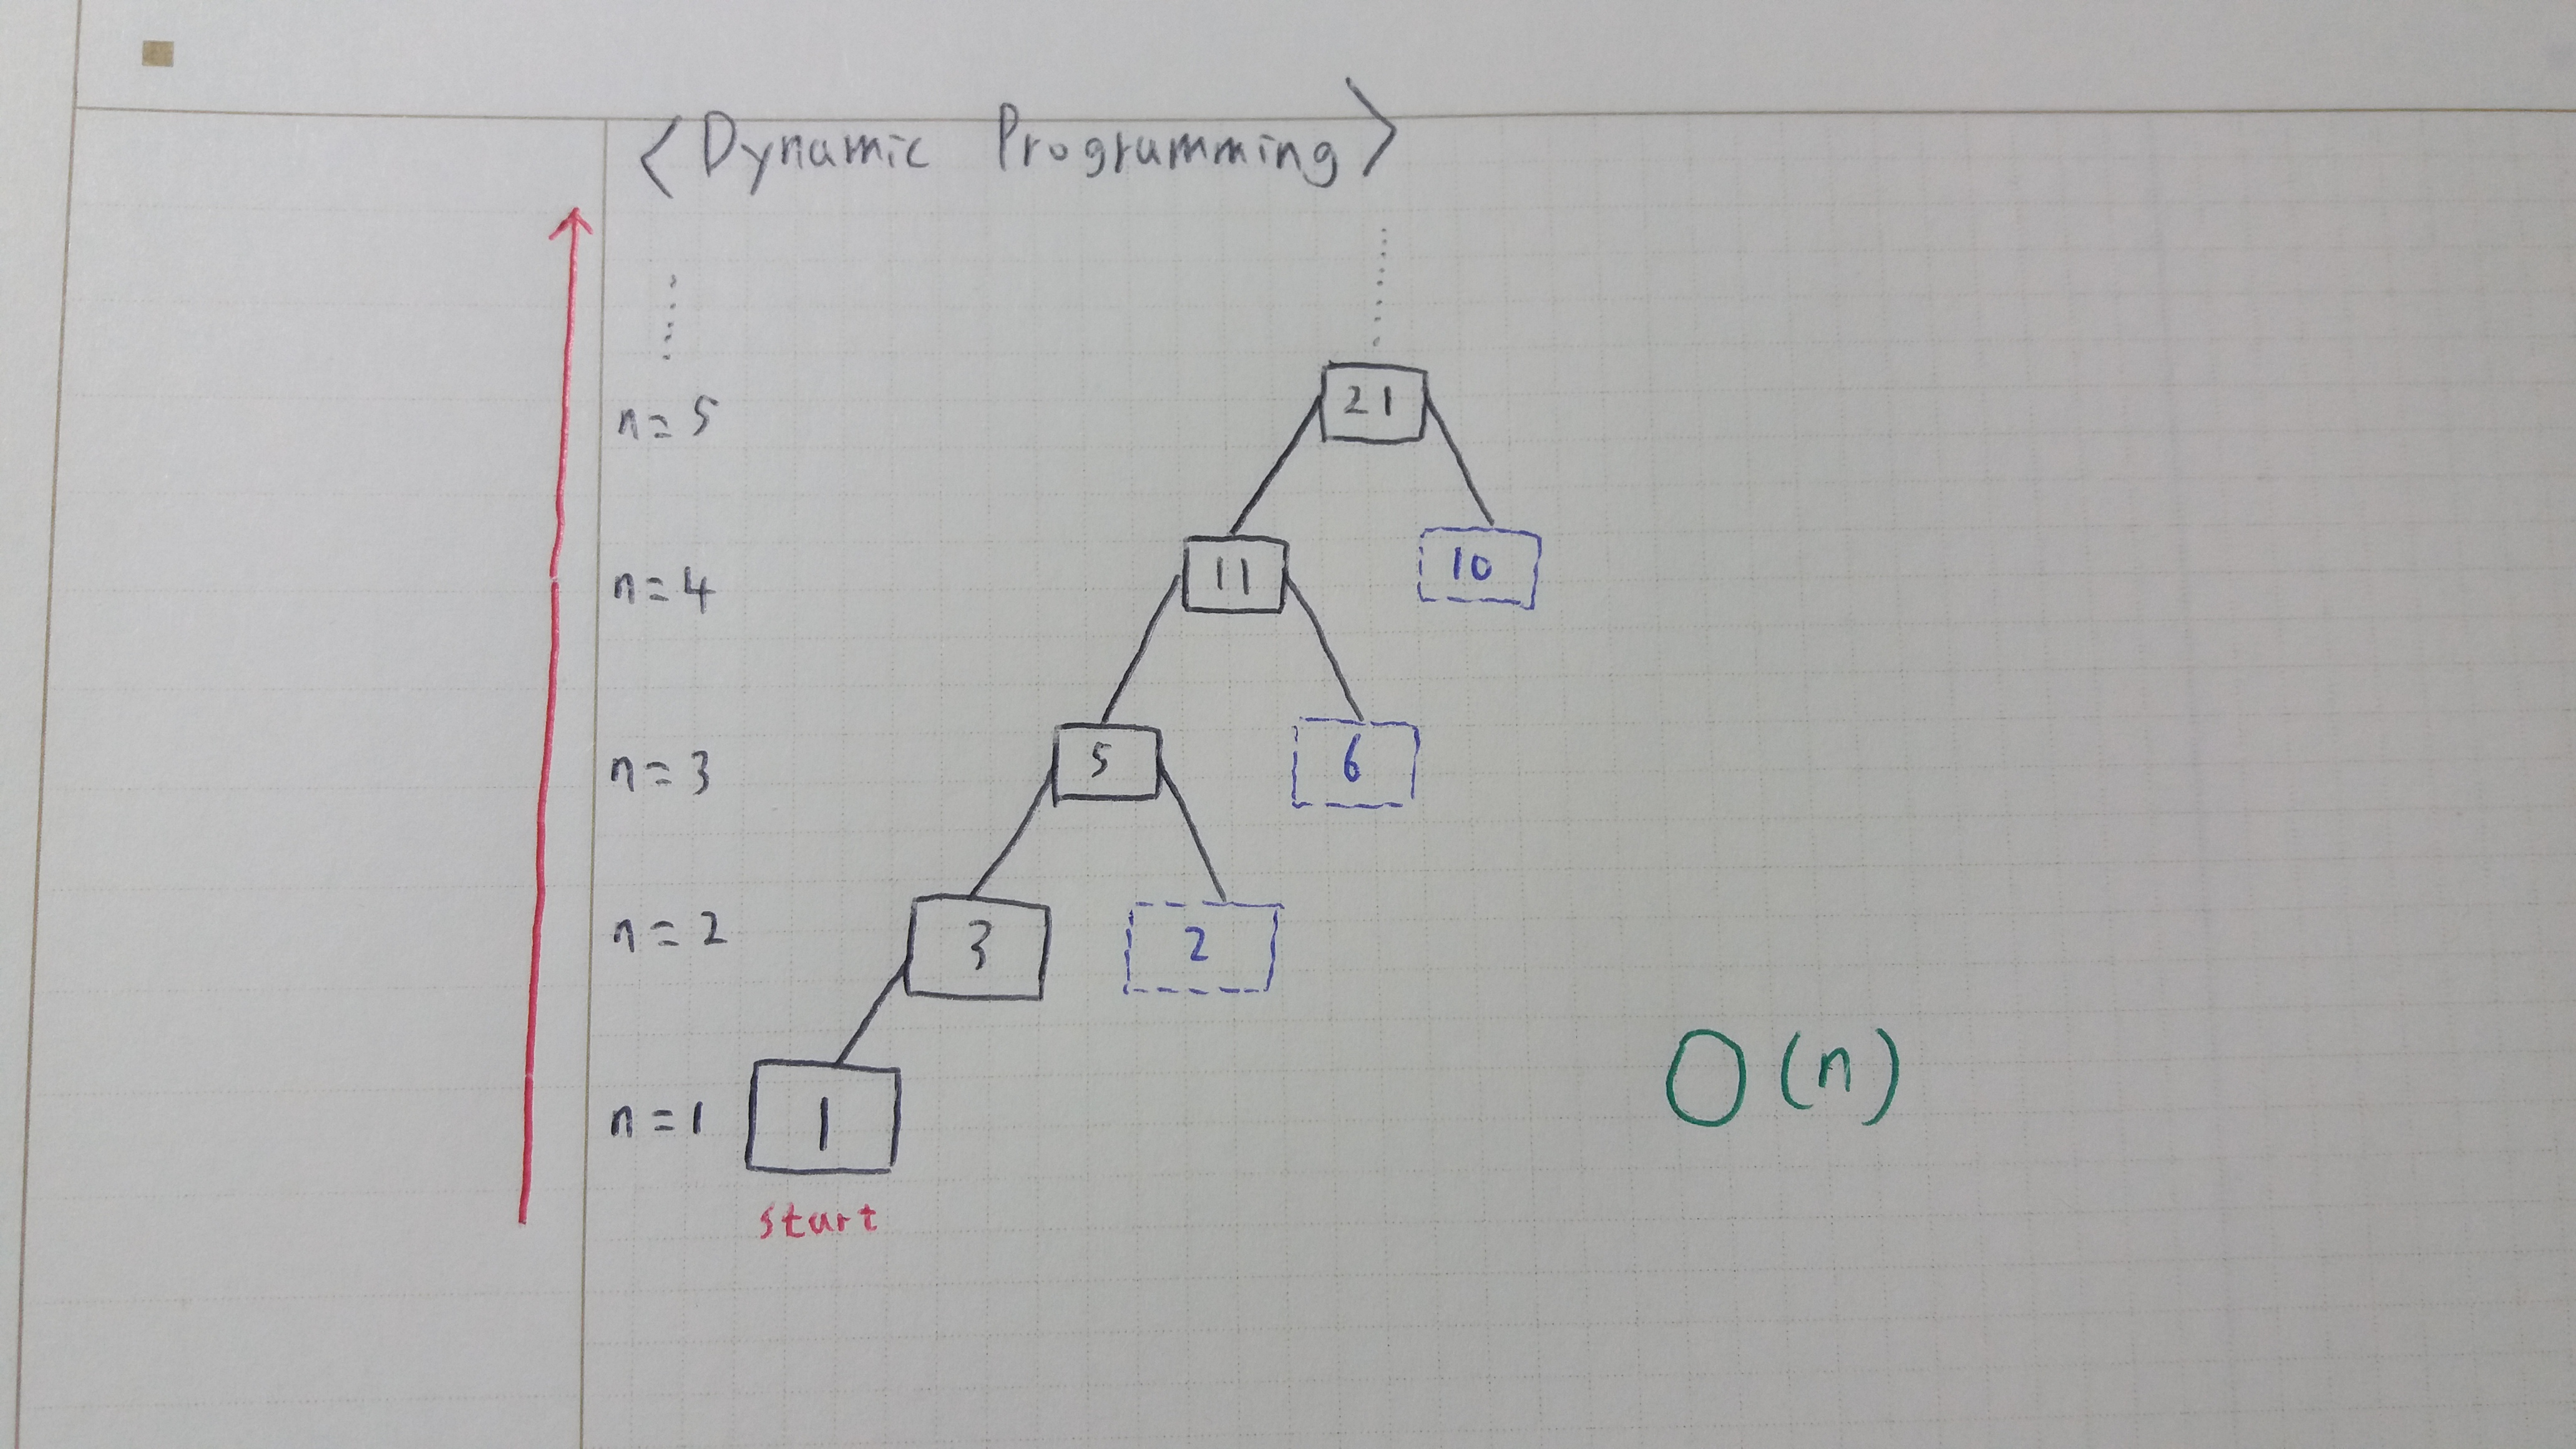 <Dynamic Programming>
n=5 21
n=4 11 10
n=3 5 6
n=2 3 2
n=1 1
start
O(n)